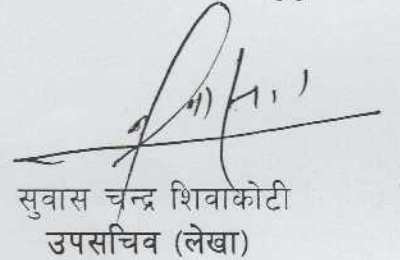 सुवास चन्द्र शिवाकोटी
उपसचिव (लेखा)